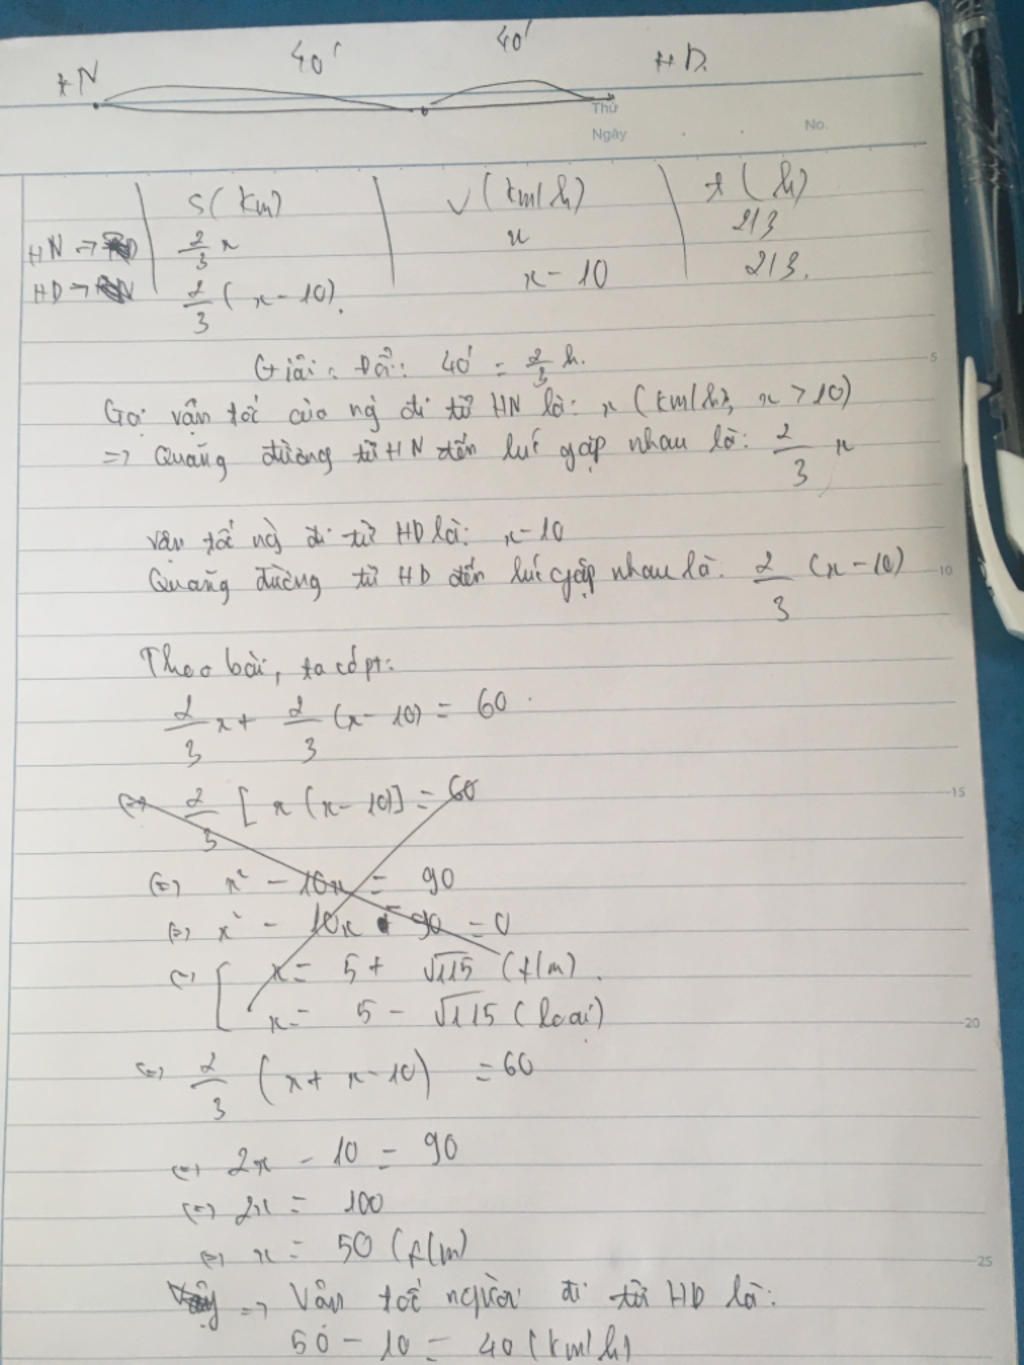 40' 40'
HN HD.
Thứ
Ngày No.
S(km) v(km/h) t(h)
HN → D 2/3 x x 2/3
HD → N 2/3 (x-10). x-10 2/3.
Giải: Đổi: 40' = 2/3 h. 5
Gọi vận tốc của ng` đi từ HN là: x (km/h, x > 10)
=> Quãng đường từ HN đến lúc gặp nhau là: 2/3 x
Vận tốc ng` đi từ HD là: x-10
Quãng đường từ HD đến lúc gặp nhau là: 2/3 (x-10) 10
Theo bài, ta có pt:
2/3 x + 2/3 (x-10) = 60
<=> 2/3 [x(x-10)] = 60 15
<=> x² - 10x = 90
<=> x² - 10x - 90 = 0
<=> [ x = 5 + √115 (t/m).
x = 5 - √115 (loại) 20
<=> 2/3 (x + x-10) = 60
<=> 2x - 10 = 90
<=> 2x = 100
<=> x = 50 (t/m) 25
=> Vận tốc người đi từ HD là:
50 - 10 = 40 (km/h)